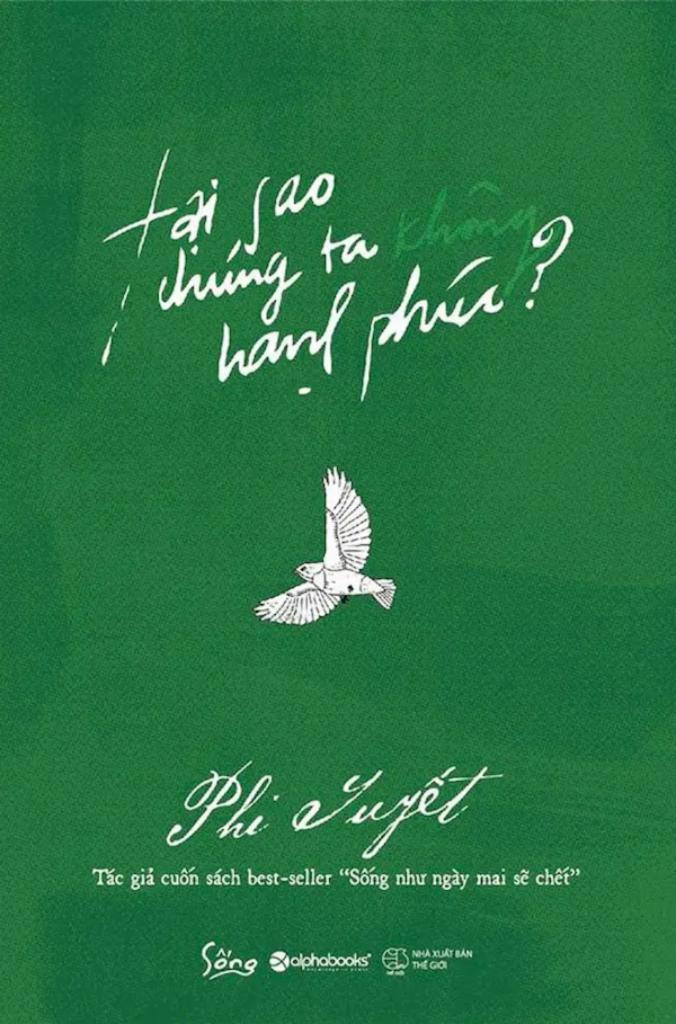 tại sao
chúng ta không
hạnh phúc?
Phi Tuyết
Tác giả cuốn sách best-seller “Sống như ngày mai sẽ chết”
Sống alphabooks® NHÀ XUẤT BẢN
THẾ GIỚI